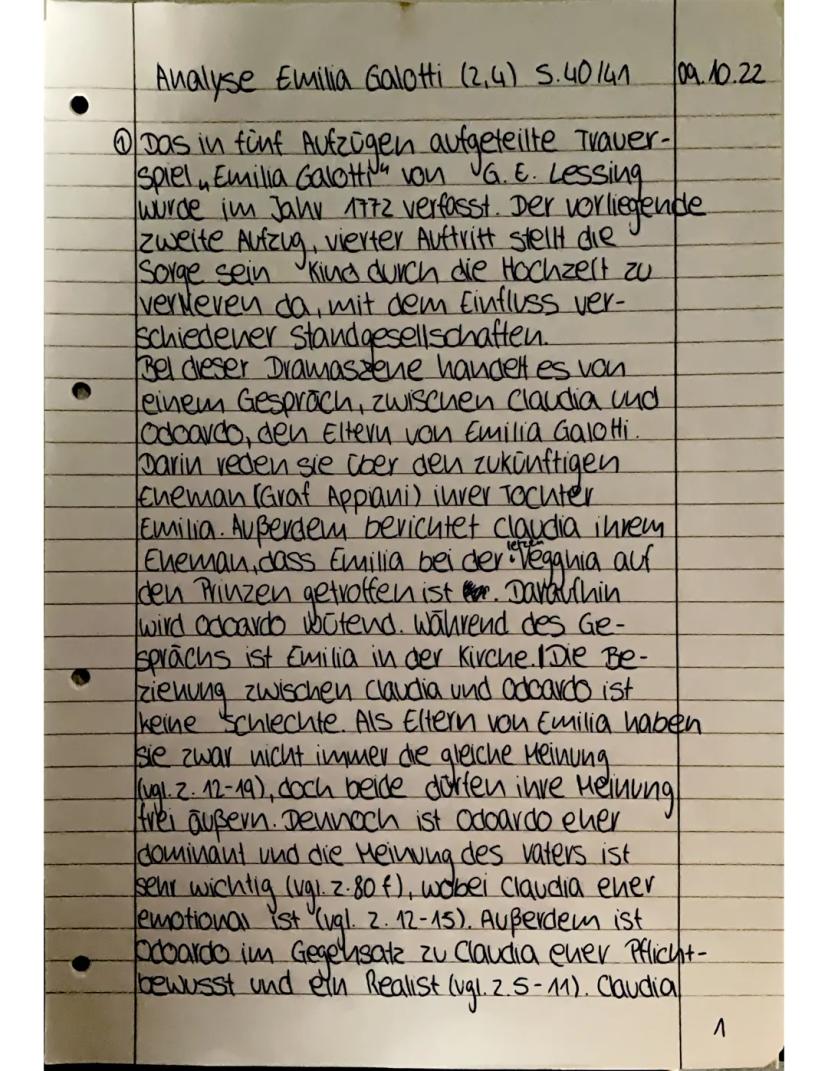 Analyse Emilia Galotti (2,4) S.40/41 09.10.22
① Das in fünf Aufzügen aufgeteilte Trauer-
spiel „Emilia Galotti" von G. E. Lessing
wurde im Jahr 1772 verfasst. Der vorliegende
zweite Aufzug, vierter Auftritt stellt die
Sorge sein Kind durch die Hochzeit zu
verlieren da, mit dem Einfluss ver-
schiedener Standgesellschaften.
Bei dieser Dramaszene handelt es von
einem Gespräch, zwischen Claudia und
Odoardo, den Eltern von Emilia Galotti.
Darin reden sie über den zukünftigen
Eheman (Graf Appiani) ihrer Tochter
Emilia. Außerdem berichtet Claudia ihrem
Eheman, dass Emilia bei der letzen Vegghia auf
den Prinzen getroffen ist. Daraufhin
wird Odoardo wütend. Während des Ge-
sprächs ist Emilia in der Kirche. | Die Be-
ziehung zwischen Claudia und Odoardo ist
keine schlechte. Als Eltern von Emilia haben
sie zwar nicht immer die gleiche Meinung
(vgl. Z. 12-19), doch beide dürfen ihre Meinung
frei äußern. Dennoch ist Odoardo eher
dominant und die Meinung des Vaters ist
sehr wichtig (vgl. Z. 80 f), wobei Claudia eher
emotional ist (vgl. Z. 12-15). Außerdem ist
Odoardo im Gegensatz zu Claudia eher Pflicht-
bewusst und ein Realist (vgl. Z. 5-11). Claudia
1